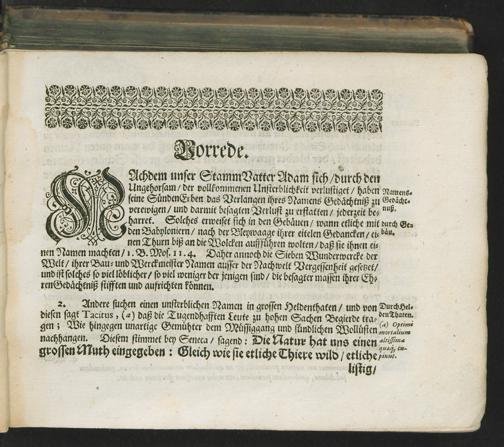 Vorrede.
NAchdem unser StammVatter Adam sich/durch den
Ungehorsam/der vollkommenen Unsterblichkeit verlustiget/haben
seine SündenErben das Verlangen ihres Namens Gedächtniß zu
verewigen/und darmit besagten Verlust zu erstatten/jederzeit be-
harret. Solches erweiset sich in den Gebäuen/wann etliche mit
den Babyloniern/nach der Bleywaage ihrer eitelen Gedancken/ei-
nen Thurn biß an die Wolcken aufführen wolten/daß sie ihnen ei-
nen Namen machten/1. B. Mos. 11. 4. Daher annoch die Sieben Wunderwercke der
Welt/ihrer Bau- und Werckmeister Namen ausser der Nachwelt Vergessenheit gesetzet/
und ist solches so viel löblicher/so viel weniger der jenigen sind/die besagter massen ihrer Eh-
renGedächtniß stifften und aufrichten können.
Namens-
Gedächt-
nuß.
durch Ge-
bäu.
2. Andere suchen einen unsterblichen Namen in grossen Heldenthaten/und von
diesen sagt Tacitus, (a) daß die Tugendhafften Leute zu hohen Sachen Begierde tra-
gen; Wie hingegen unartige Gemühter dem Müssiggang und sündlichen Wollüsten
nachhangen. Diesem stimmet bey Seneca/sagend: Die Natur hat uns einen
grossen Muth eingegeben: Gleich wie sie etliche Thiere wild/etliche
listig/
Durch Hel-
denThaten.
(a) Optimi
mortalium
altissima